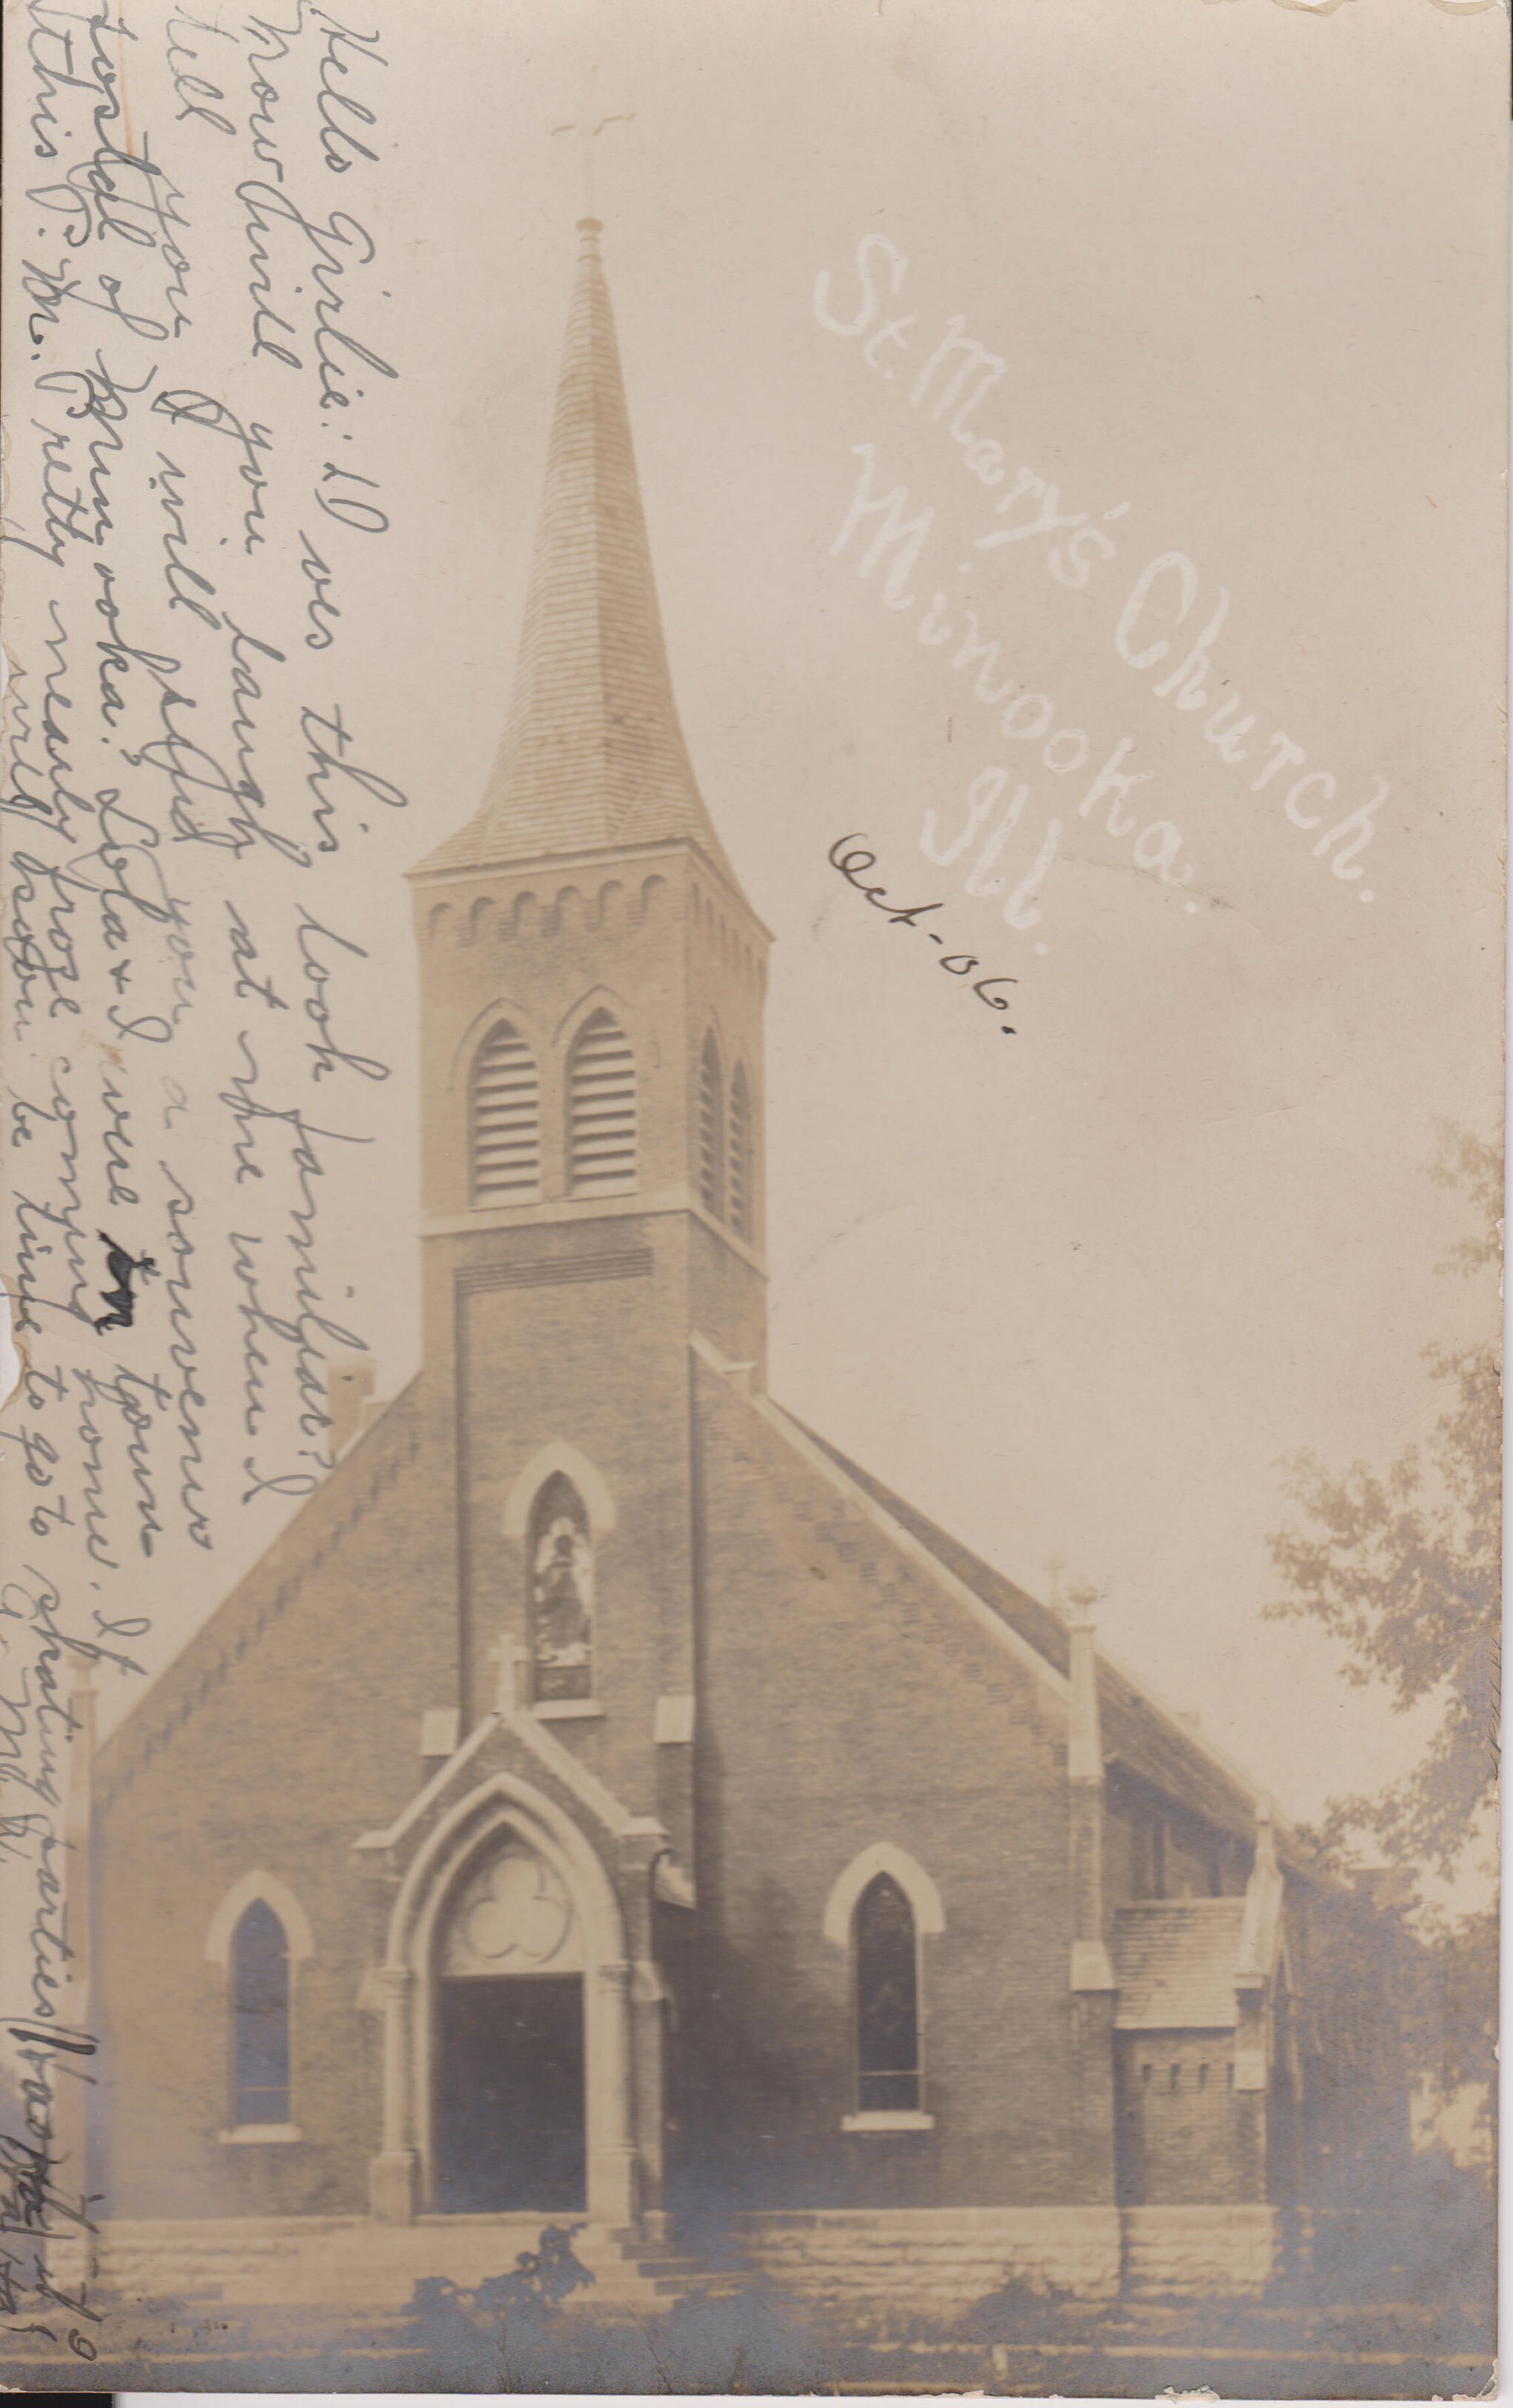 St. Mary's Church.
Minooka.
Ill.
Oct-06.
Hello Girlie: Does this look familiar?
Now will you laugh at me when I
tell you I will send you a souvenir
postal of Minooka? Lola & I were in town
this P. M. Pretty nearly froze coming home. It
will soon be time to go to skating parties